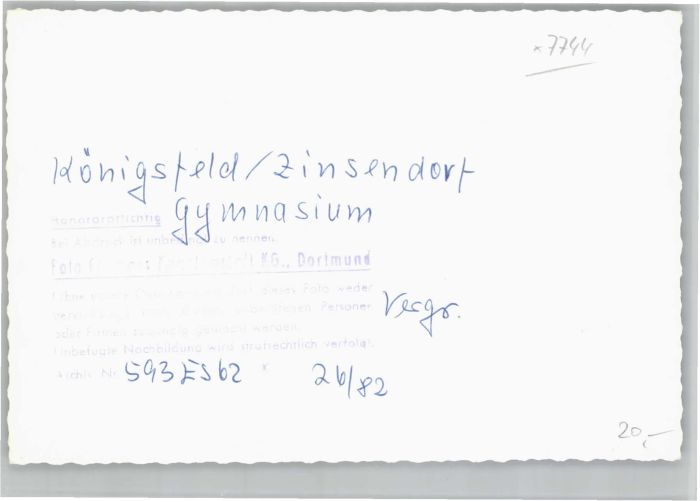 *7744
Königsfeld/Zinsendorf
Gymnasium
Honorarpflichtig
Bei Abdruck ist zu nennen:
Foto KG., Dortmund
Ohne dieses Foto weder
Personen
oder Firmen werden.
Unbefugte Nachbildung wird strafrechtlich verfolgt.
Vergr.
Archiv Nr. 593ES62 * 26/82
20,-